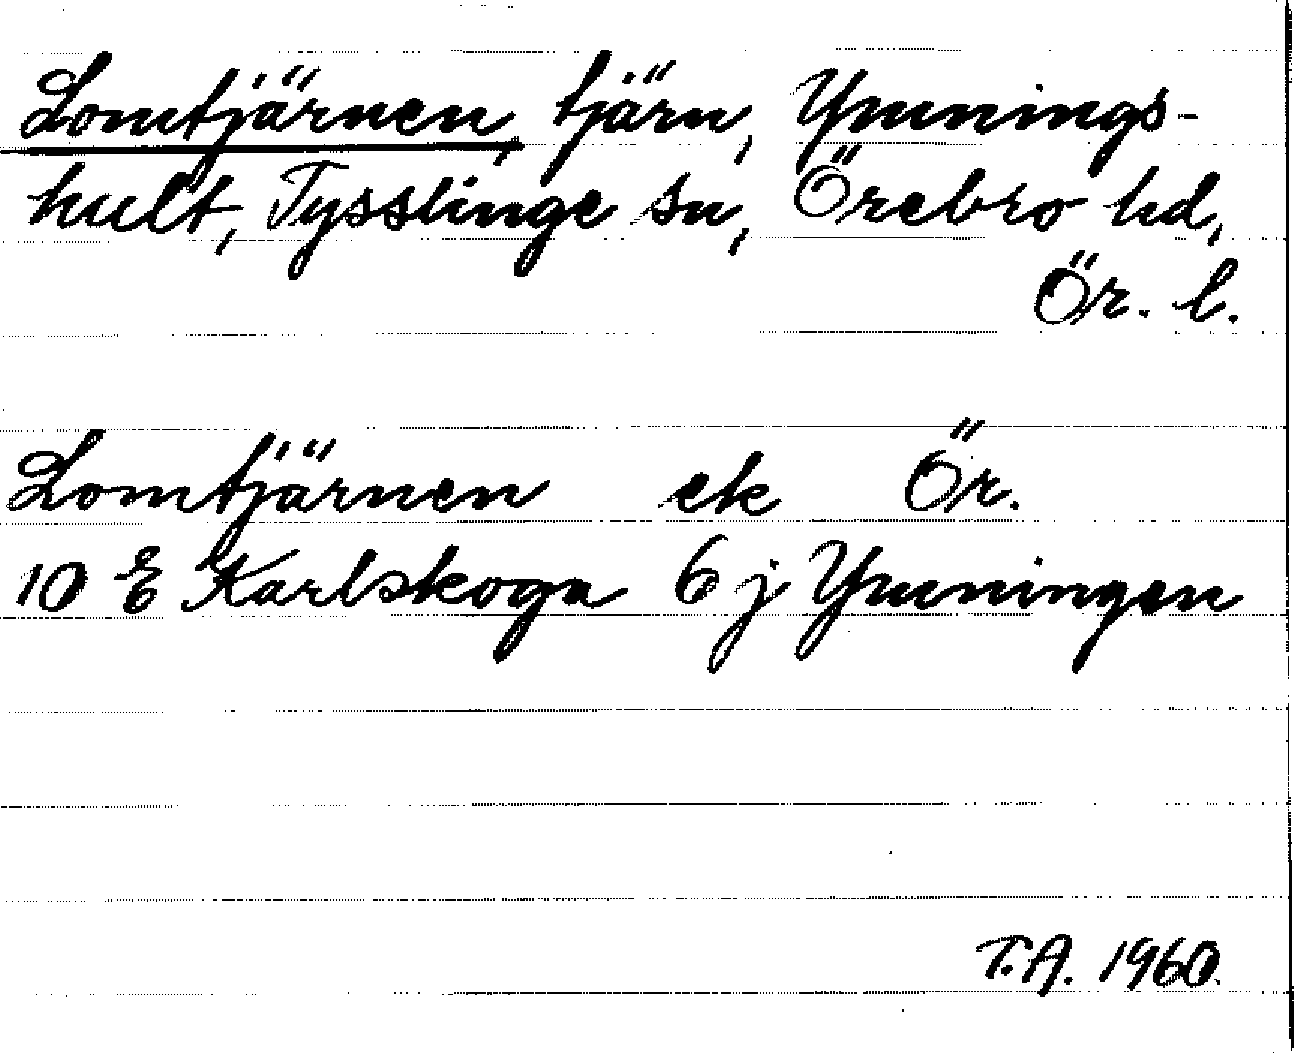 Lomtjärnen, tjärn, Ymnings-
hult, Tysslinge sn, Örebro hd,
Ör. l.
Lomtjärnen ek Ör.
10 E Karlskoga 6 j Ymningen
T.A. 1960.